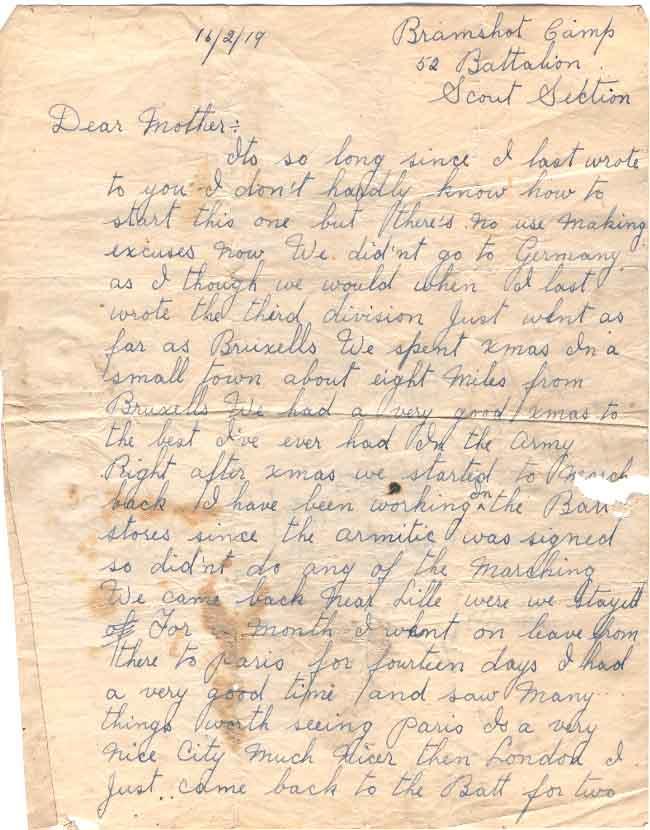 16/2/19
Bramshot Camp
52 Battalion.
Scout Section
Dear Mother:
Its so long since I last wrote
to you I don't hadly know how to
start this one but there's no use making
excuses now We did'nt go to Germany
as I though we would when I last
wrote the third division Just went as
far as Bruxells We spent xmas In a
small town about eight Miles from
Bruxells We had a very good xmas to
the best I've ever had In the Army
Right after xmas we started to March
back I have been working on the Batt
stores since the armitic was signed
so did'nt do any of the Marching
We came back Near Lille were we stayed
For a month I went on leave from
there to Paris for fourteen days I had
a very good time and saw Many
things worth seeing Paris Is a very
Nice City Much Nicer then London I
Just came back to the Batt for two